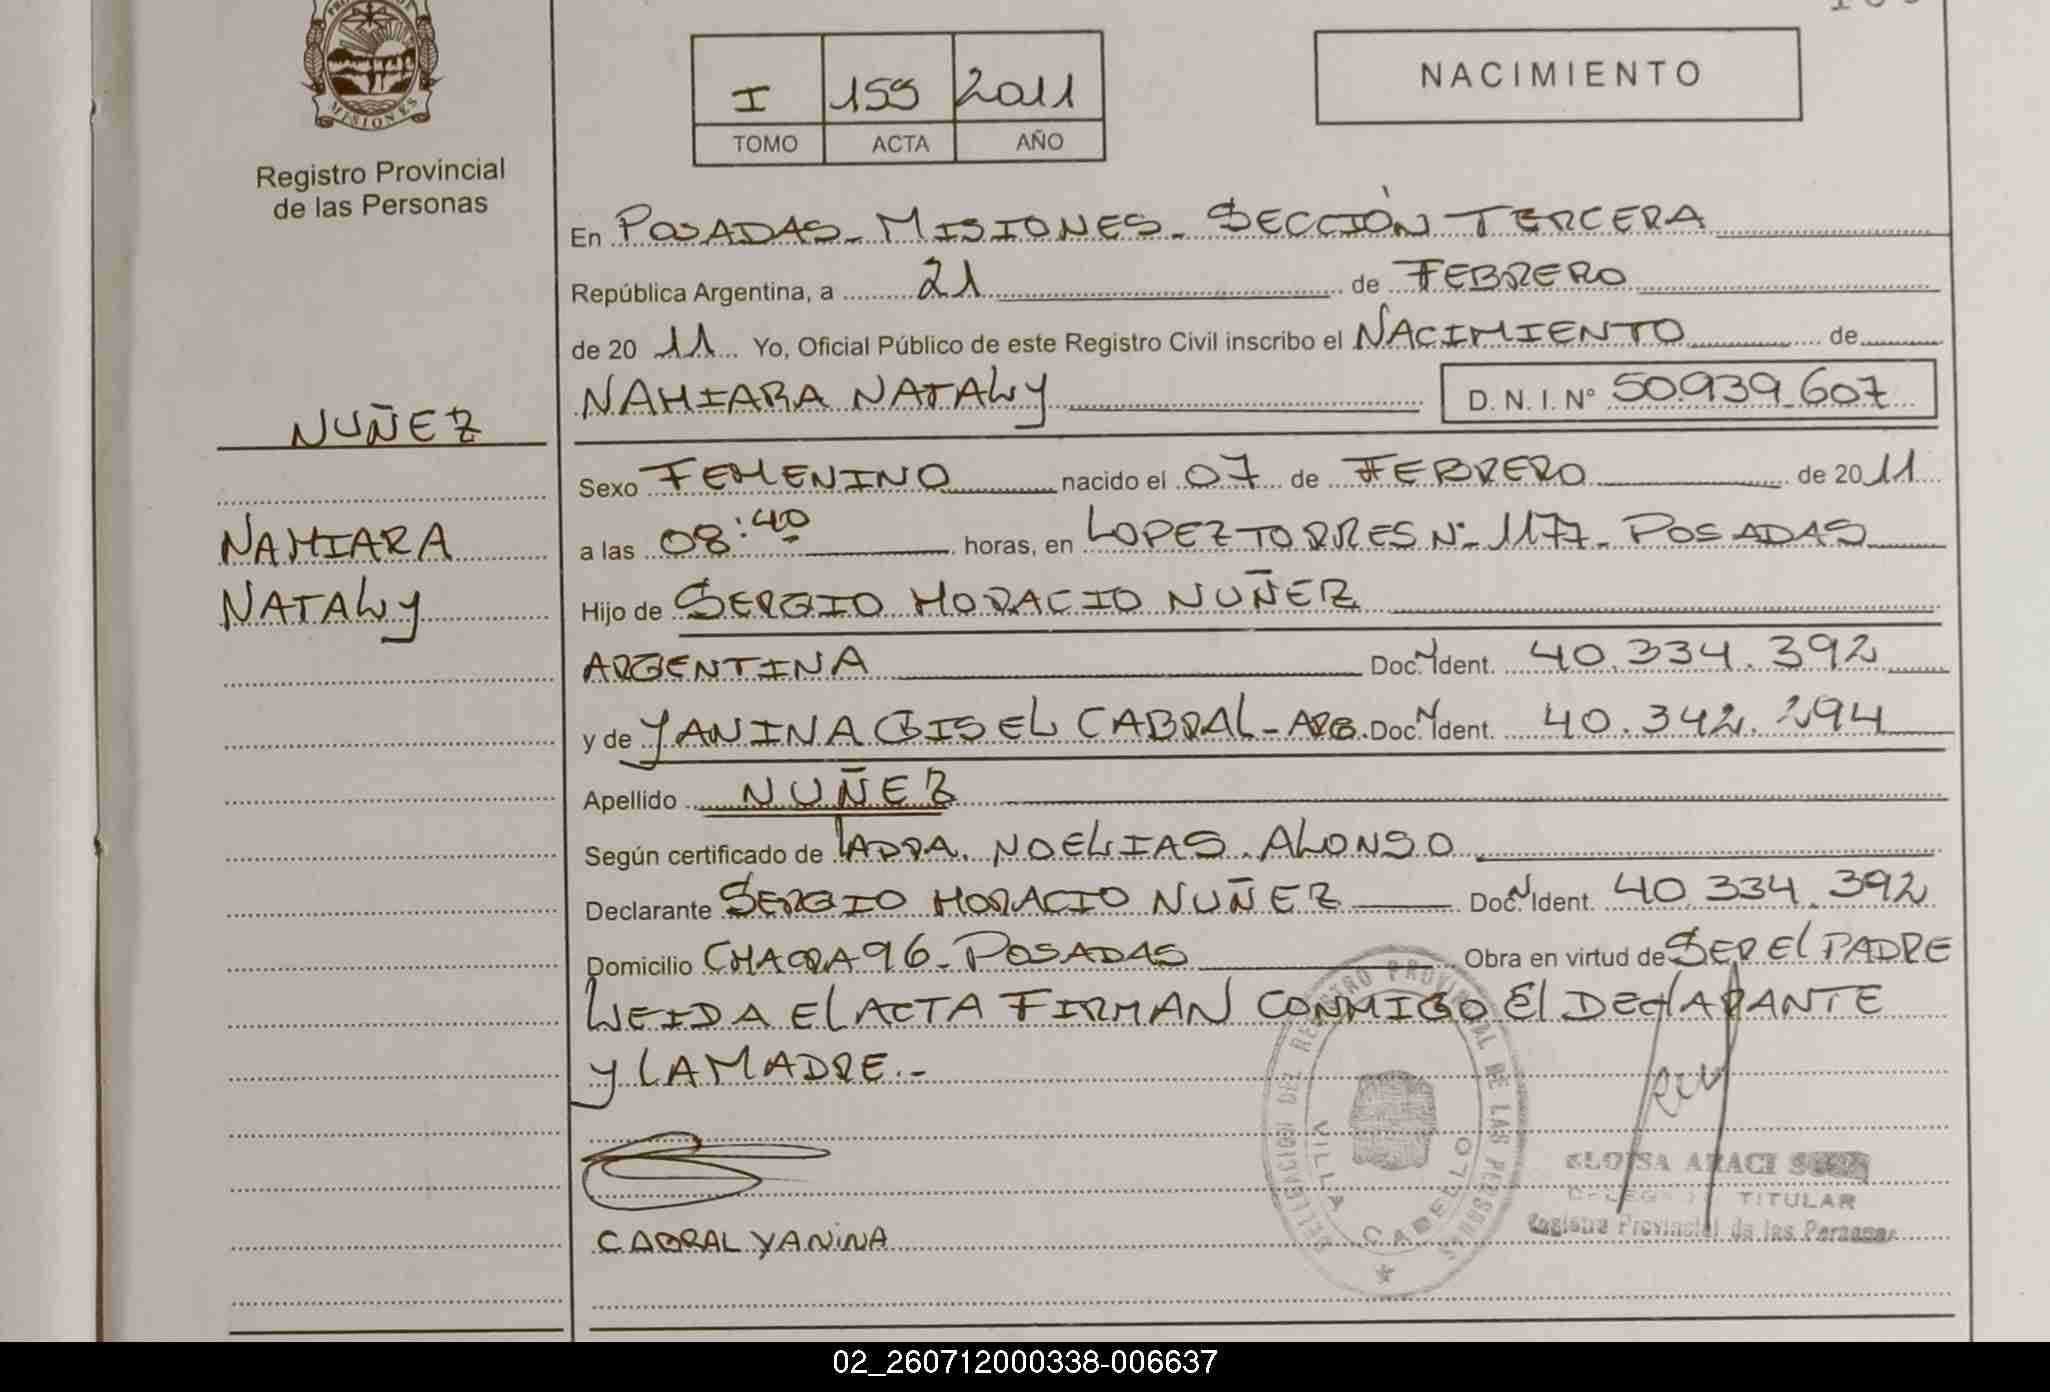 MISIONES
Registro Provincial
de las Personas
I 159 2011
TOMO ACTA AÑO
NACIMIENTO
En POSADAS - MISIONES - SECCIÓN TERCERA
República Argentina, a 21 de FEBRERO
de 20 11 Yo, Oficial Público de este Registro Civil inscribo el NACIMIENTO de
NAHIARA NATALY D. N. I. N° 50939607
NUÑEZ
NAHIARA
NATALY
Sexo FEMENINO nacido el 07 de FEBRERO de 20 11
a las 08:40 horas, en LOPEZ TORRES N- 1177 - POSADAS
Hijo de SERGIO HORACIO NUÑEZ
ARGENTINA Doc. N Ident. 40.334.392
y de YANINA GISEL CABRAL - ARG. Doc. N Ident. 40.342.294
Apellido NUÑEZ
Según certificado de LA DRA. NOELIA S. ALONSO
Declarante SERGIO HORACIO NUÑEZ Doc. N Ident. 40.334.392
Domicilio CHACRA 96 - POSADAS Obra en virtud de SER EL PADRE
LEIDA EL ACTA FIRMAN CONMIGO El DEClARANTE
y LA MADRE.-
CABRAL YANINA
DELEGACION DEL REGISTRO PROVINCIAL DE LAS PERSONAS
VILLA CABELLO
ELOISA ARACI
TITULAR
Registro Provincial de las Personas
02_260712000338-006637